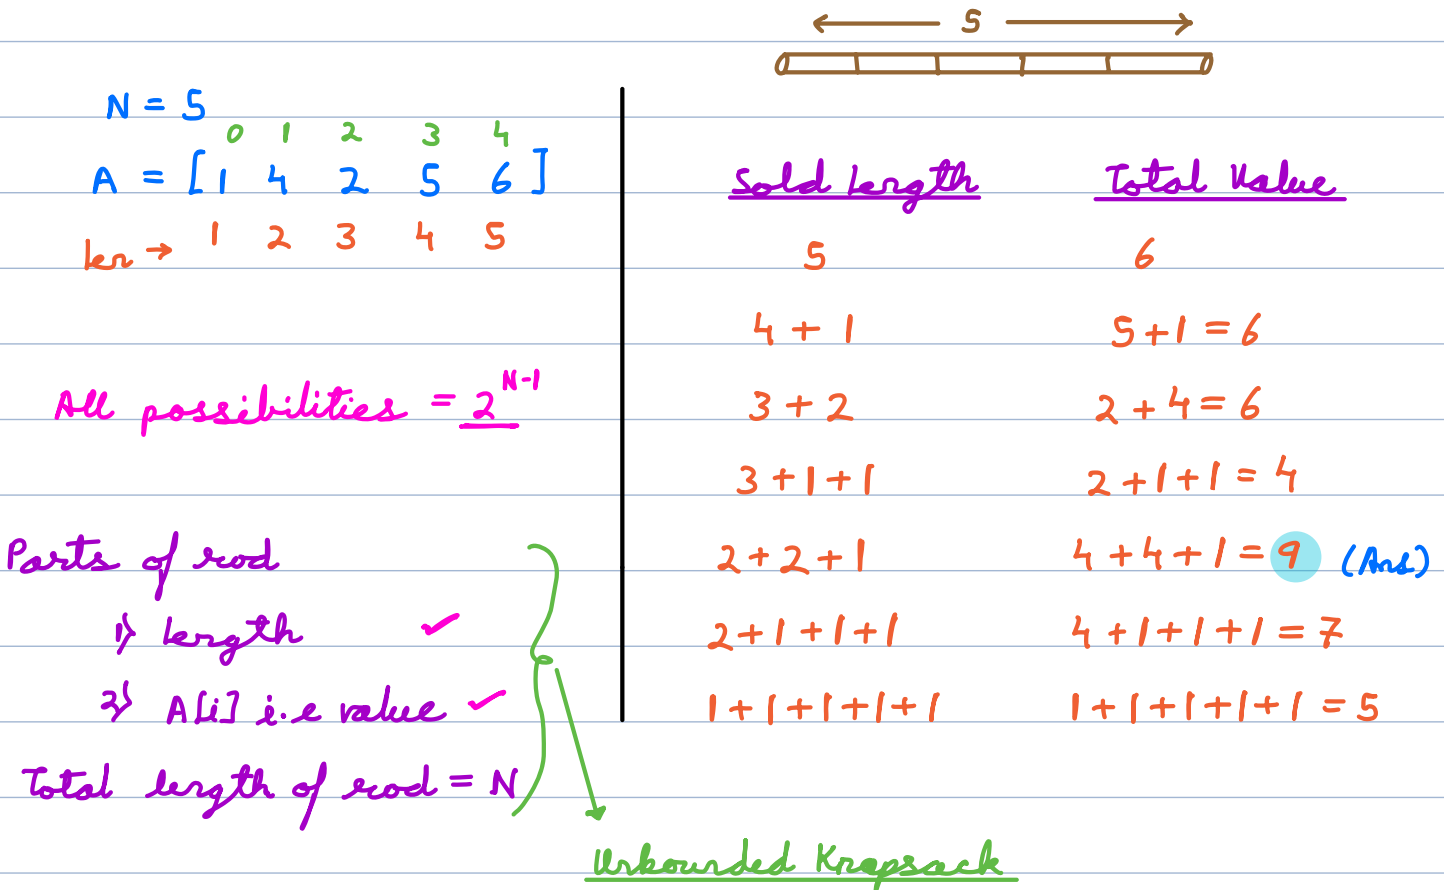 5
N = 5
0 1 2 3 4
A = [1 4 2 5 6]
len → 1 2 3 4 5
All possibilities = 2^N-1
Parts of rod
1) length ✓
2) A[i] i.e value ✓
Total length of rod = N
Unbounded Knapsack
Sold Length Total Value
5 6
4 + 1 5 + 1 = 6
3 + 2 2 + 4 = 6
3 + 1 + 1 2 + 1 + 1 = 4
2 + 2 + 1 4 + 4 + 1 = 9 (Ans)
2 + 1 + 1 + 1 4 + 1 + 1 + 1 = 7
1 + 1 + 1 + 1 + 1 1 + 1 + 1 + 1 + 1 = 5